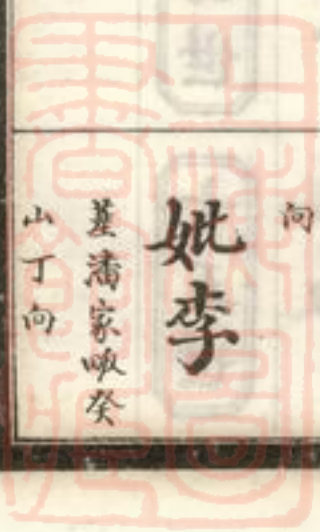 向
妣李
墓潘家畈癸
山丁向